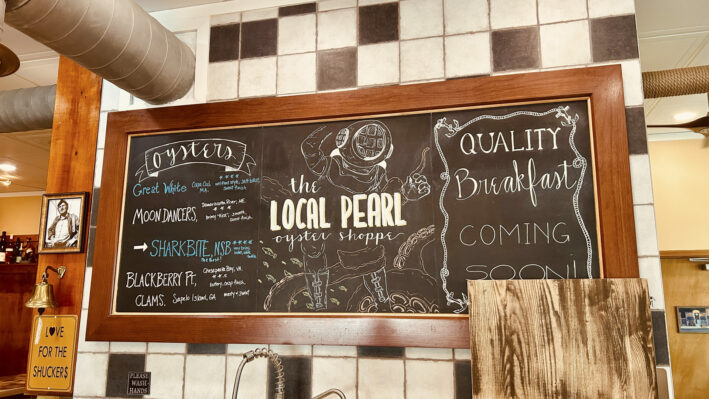 OYSTERS
GREAT WHITE Cape Cod, MA.
MOON DANCERS, Damariscotta River, ME.
→ SHARKBITE, NSB
BLACKBERRY PT, Chesapeake Bay, VA
buttery, crisp finish
CLAMS. Sapelo Island, GA meaty & sweet
the
LOCAL PEARL
oyster shoppe
QUALITY
Breakfast
COMING
SOON!
LOVE
FOR THE
SHUCKERS
PLEASE
WASH
HANDS